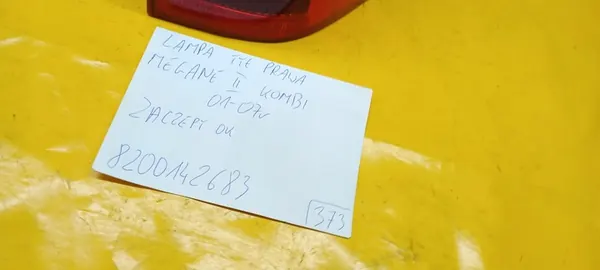 LAMPA TYŁ PRAWA
MÉGANE II KOMBI
01-07r
ZACZEPY OK
8200142683
373